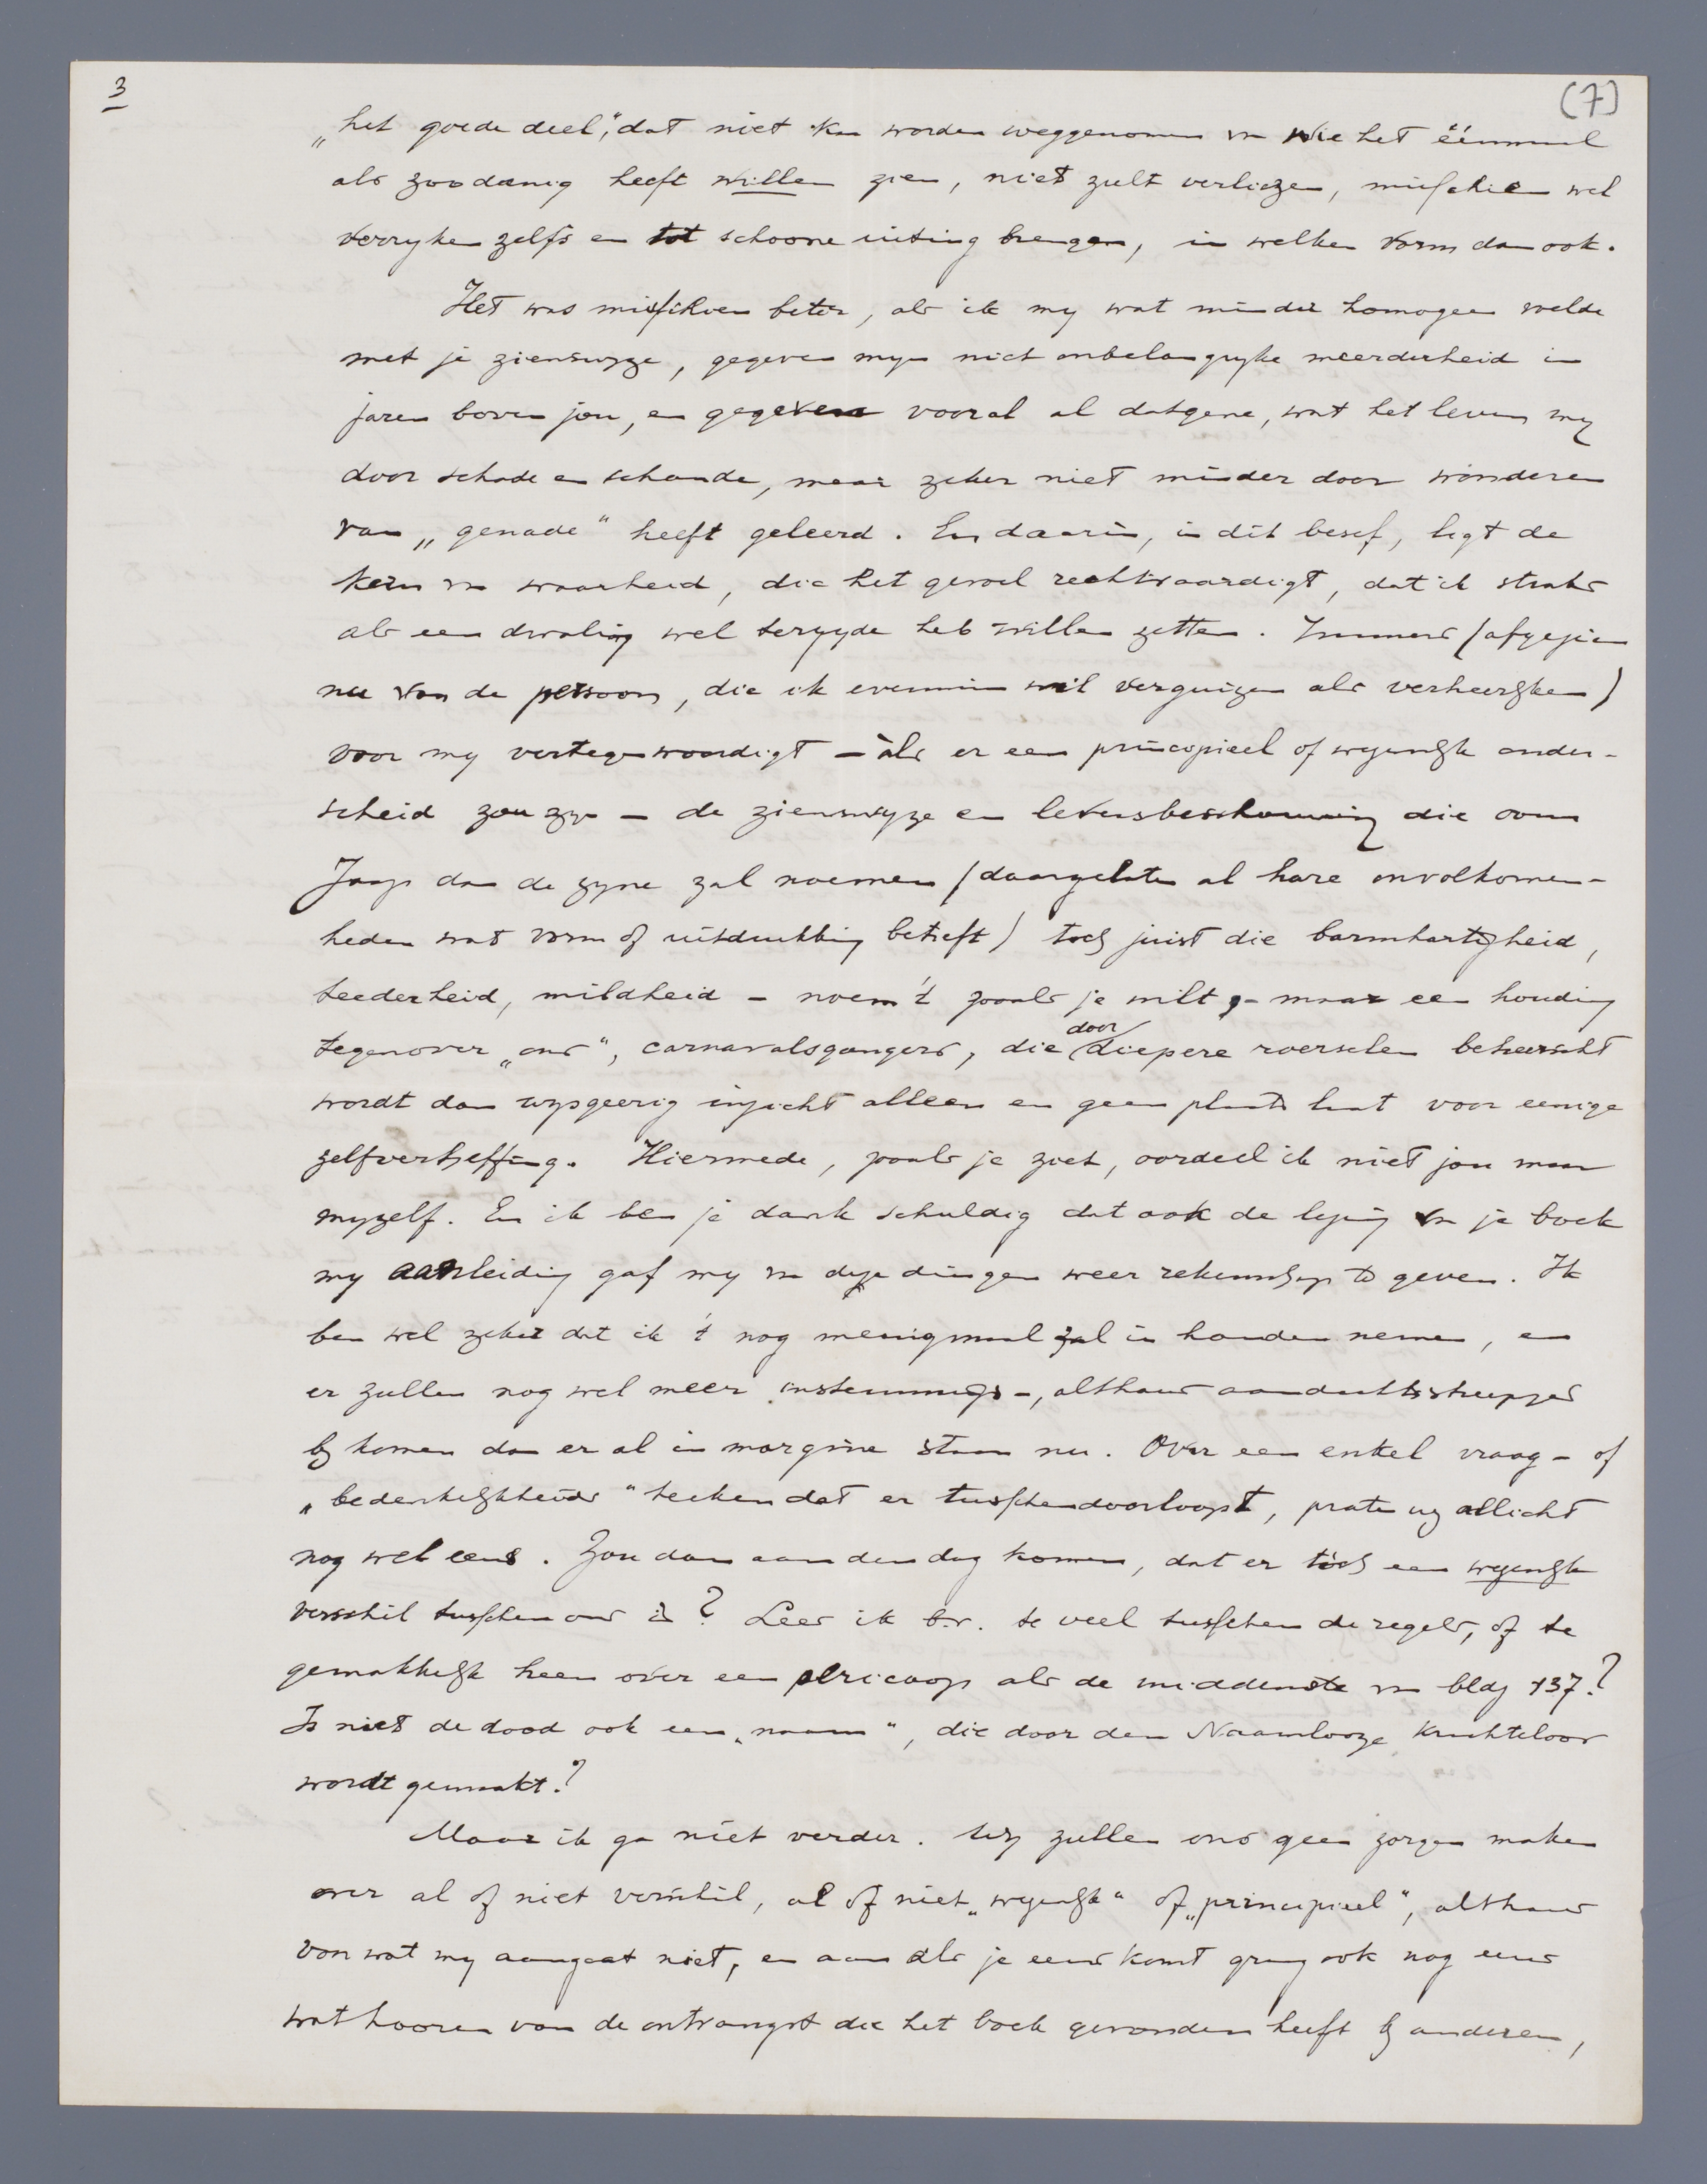 3
(7)
„het goede deel", dat niet kan worden weggenomen van wie het éénmaal
als zoodanig heeft willen zien, niet zult verliezen, misschien wel
verryken zelfs en tot schoone uiting brengen, in welken vorm dan ook.
Het was misschien beter, als ik my wat minder homogeen voelde
met je zienswyze, gegeven myn niet onbelangryke meerderheid in
jaren boven jou, en gegeven vooral al datgene, wat het leven my
door schade en schande, maar zeker niet minder door wonderen
van „genade" heeft geleerd. En daarin, in dit besef, ligt de
kern van waarheid, die het gevoel rechtvaardigt, dat ik straks
als een dwaling wel terzyde heb willen zetten. Immers (afgezien
nu van de persoon, die ik evenmin wil verguizen als verheerlyken)
voor my vertegenwoordigt - àls er een principieel of wezenlyk onder-
scheid zou zyn - de zienswyze en levensbeschouwing die oom
Jaap dan de zyne zal noemen (daargelaten al hare onvolkomen-
heden wat vorm of uitdrukking betreft) toch juist die barmhartigheid,
teederheid, mildheid - noem 't zooals je wilt - maar een houding
tegenover „ons", carnavalsgangers, die door diepere roerselen beheerscht
wordt dan wysgeerig inzicht alleen en geen plaats laat voor eenige
zelfverheffing. Hiermede, zooals je ziet, oordeel ik niet jou maar
myzelf. En ik ben je dank schuldig dat ook de lezing van je boek
my aanleiding gaf my van deze dingen weer rekenschap te geven. Ik
ben wel zeker dat ik 't nog menigmaal zal in handen nemen, en
er zullen nog wel meer instemmings-, althans aandachtsstreepjes
by komen dan er al in margine staan nu. Over een enkel vraag- of
„bedenkelykheids" teeken dat er tusschendoorloopt, praten wy allicht
nog wel eens. Zou dan aan den dag komen, dat er tòch een wezenlyk
verschil tusschen ons is? Lees ik b.v. te veel tusschen de regels, of te
gemakkelyk heen over een pericoop als de middenste van bldz 137?
Is niet de dood ook een „naam", die door den Naamlooze krachteloos
wordt gemaakt?
Maar ik ga niet verder. Wy zullen ons geen zorgen maken
over al of niet verschil, al of niet „wezenlyk" of „principieel", althans
van wat my aangaat niet, en aan als je eens komt graag ook nog eens
wat hooren van de ontvangst die het boek gevonden heeft by anderen,